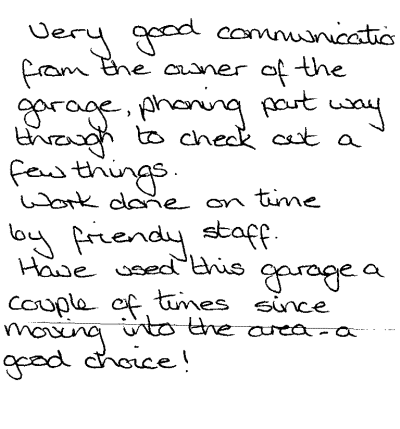 Very good communicatio
from the owner of the
garage, phoning part way
through to check out a
few things.
Work done on time
by friendy staff.
Have used this garage a
couple of times since
moving into the area - a
good choice!